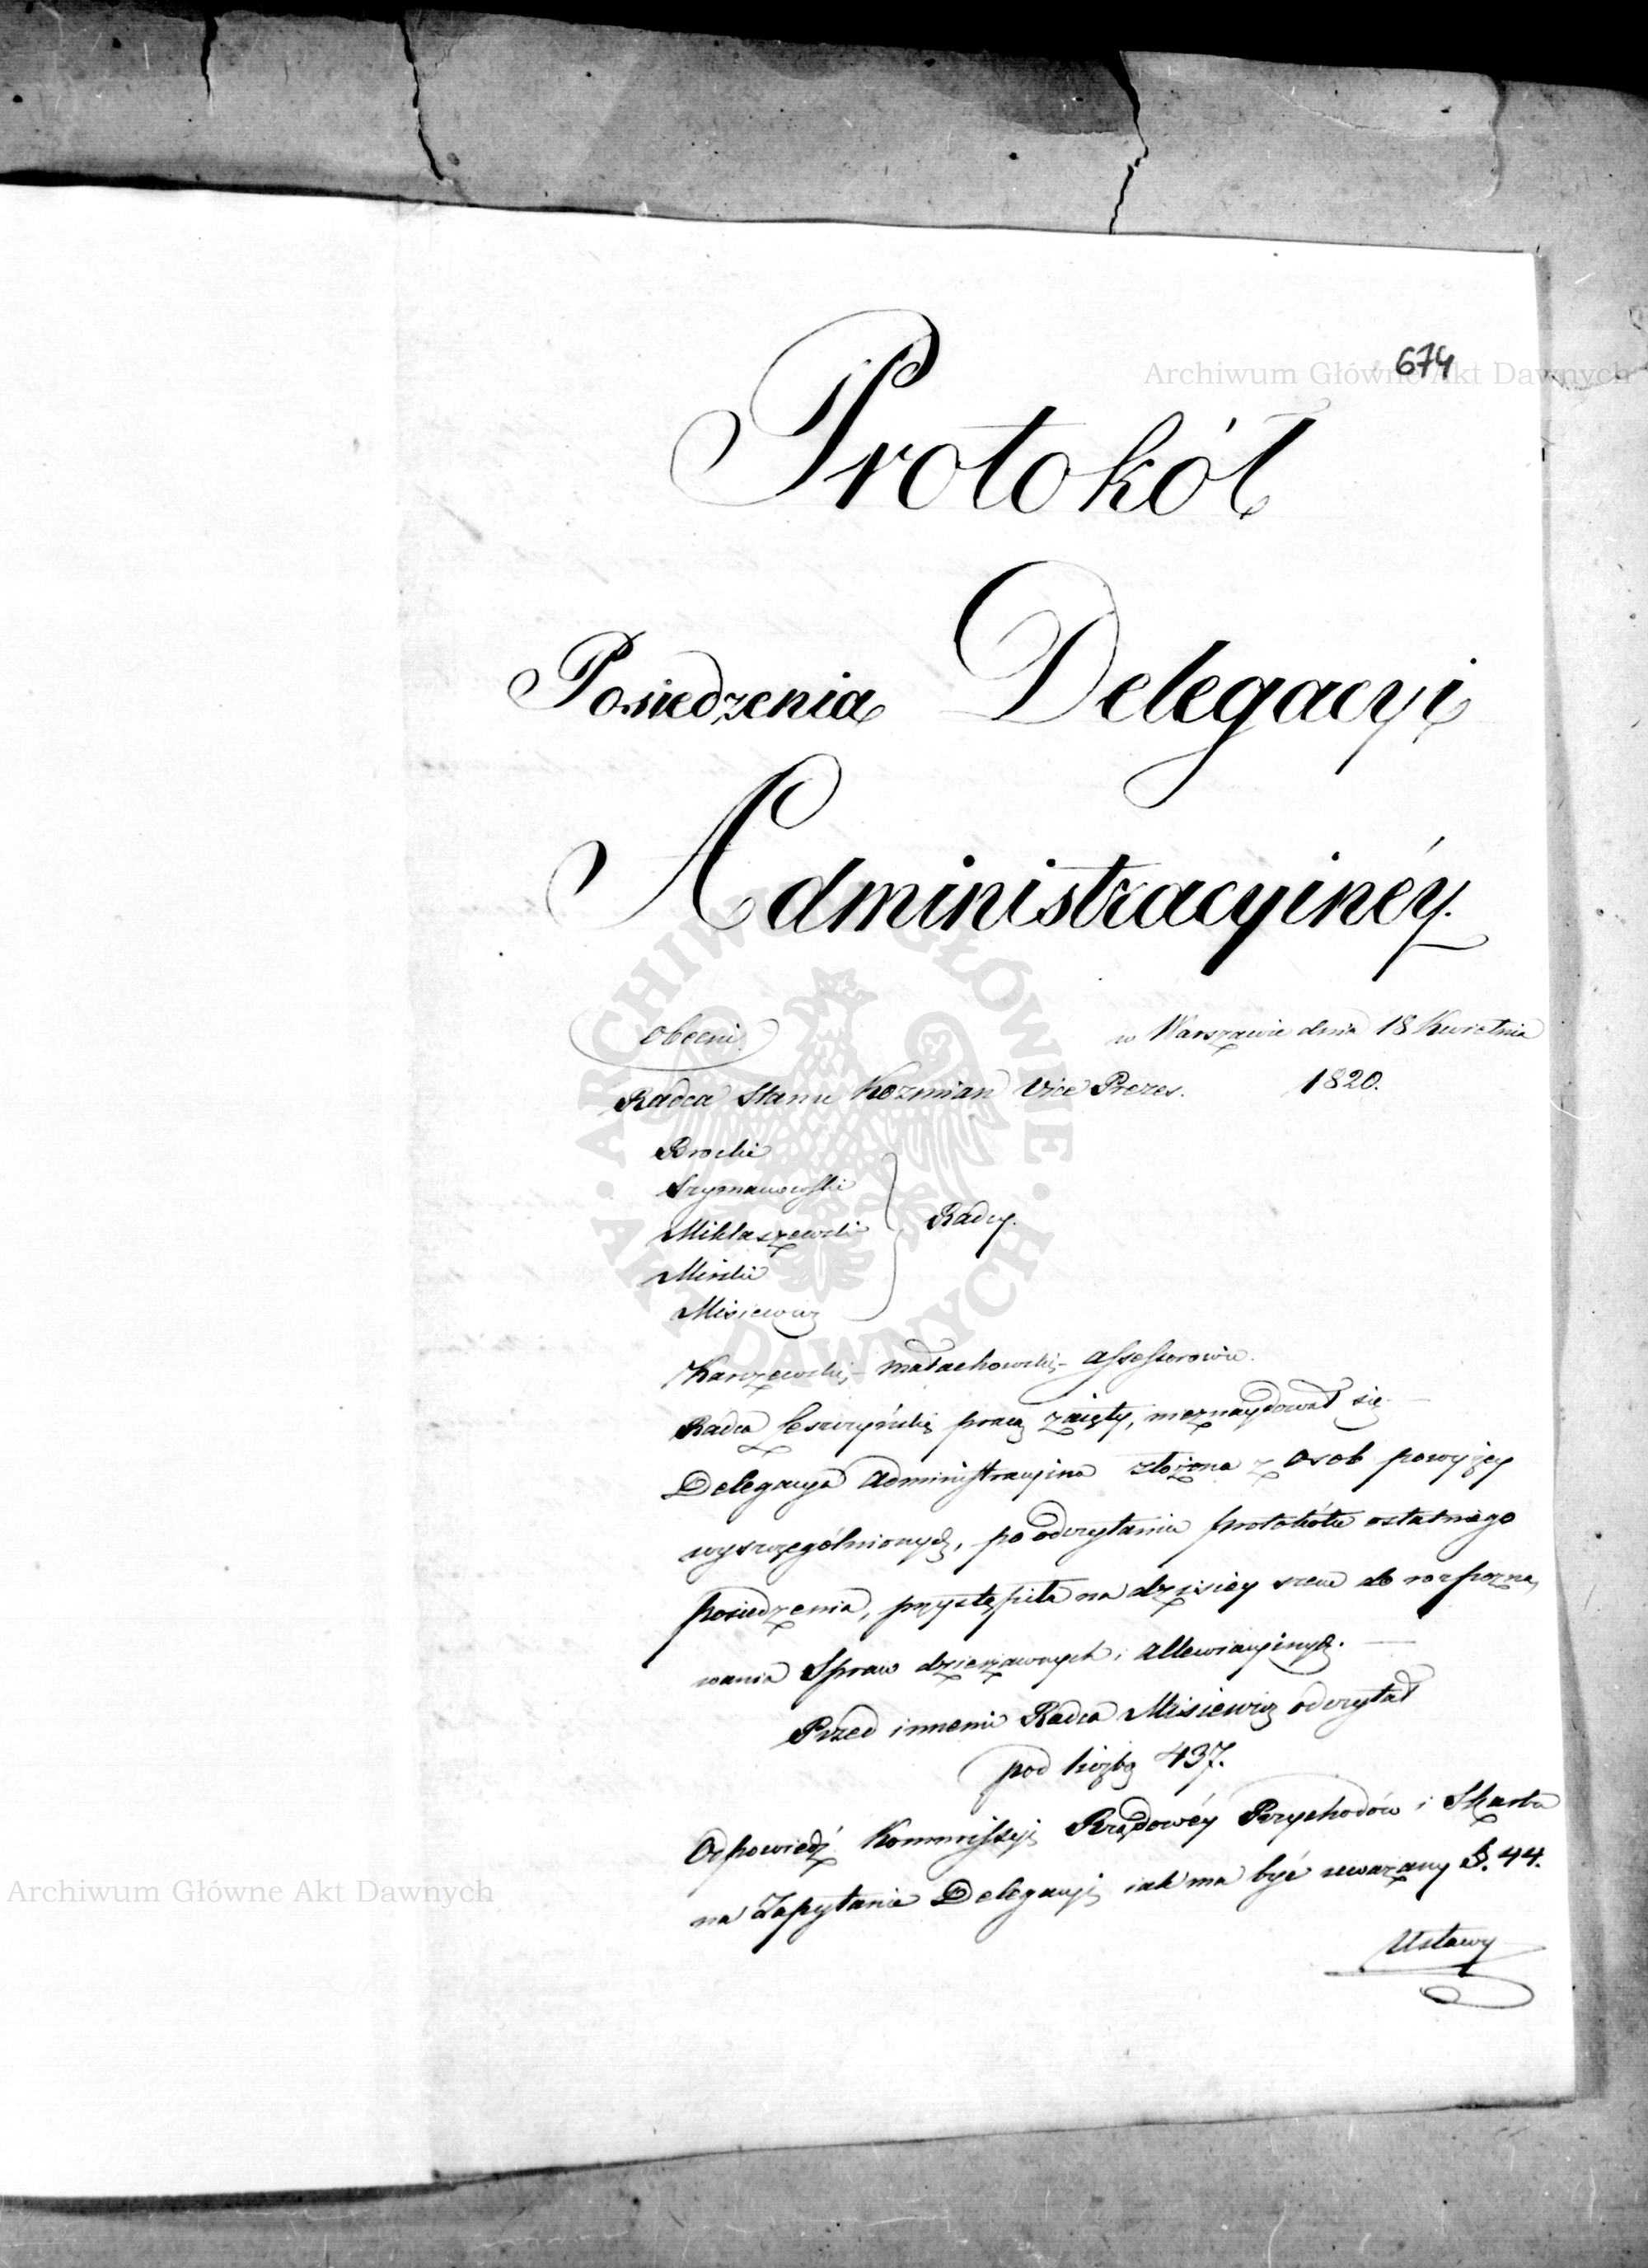 674
Archiwum Główne Akt Dawnych
Protokół
Posiedzenia Delegacyi
Administracyinéy.
obecni w Warszawie dnia 18 Kwietnia
Radca Stanu Kozmian Vice Prezes. 1820.
Brocki
Szymanowski
Miklaszewski Radcy.
Mirski
Misiewicz
Karczewski, – Małachowski, – Assessorowie.
Radca pracą zaięty, nieznaydował się. –
Delegacya Administracyina złożona z osob powyżey
wyszczególnionych, po odczytaniu protokółu ostatniego
posiedzenia, przystąpiła na dzisiey szem do rozpozna,
wania Spraw dzierżawnych i allewiacyinych. –
Przed innemi Radca Misiewicz odczytał
pod liczbą 437.
Odpowiedź Kommissyi Rządowéy Przychodów i Skarbu
na Zapytanie Delegacyi, iak ma być uważany §. 44.
Ustawy
Archiwum Główne Akt Dawnych
ARCHIWUM GŁÓWNE · AKT DAWNYCH ·